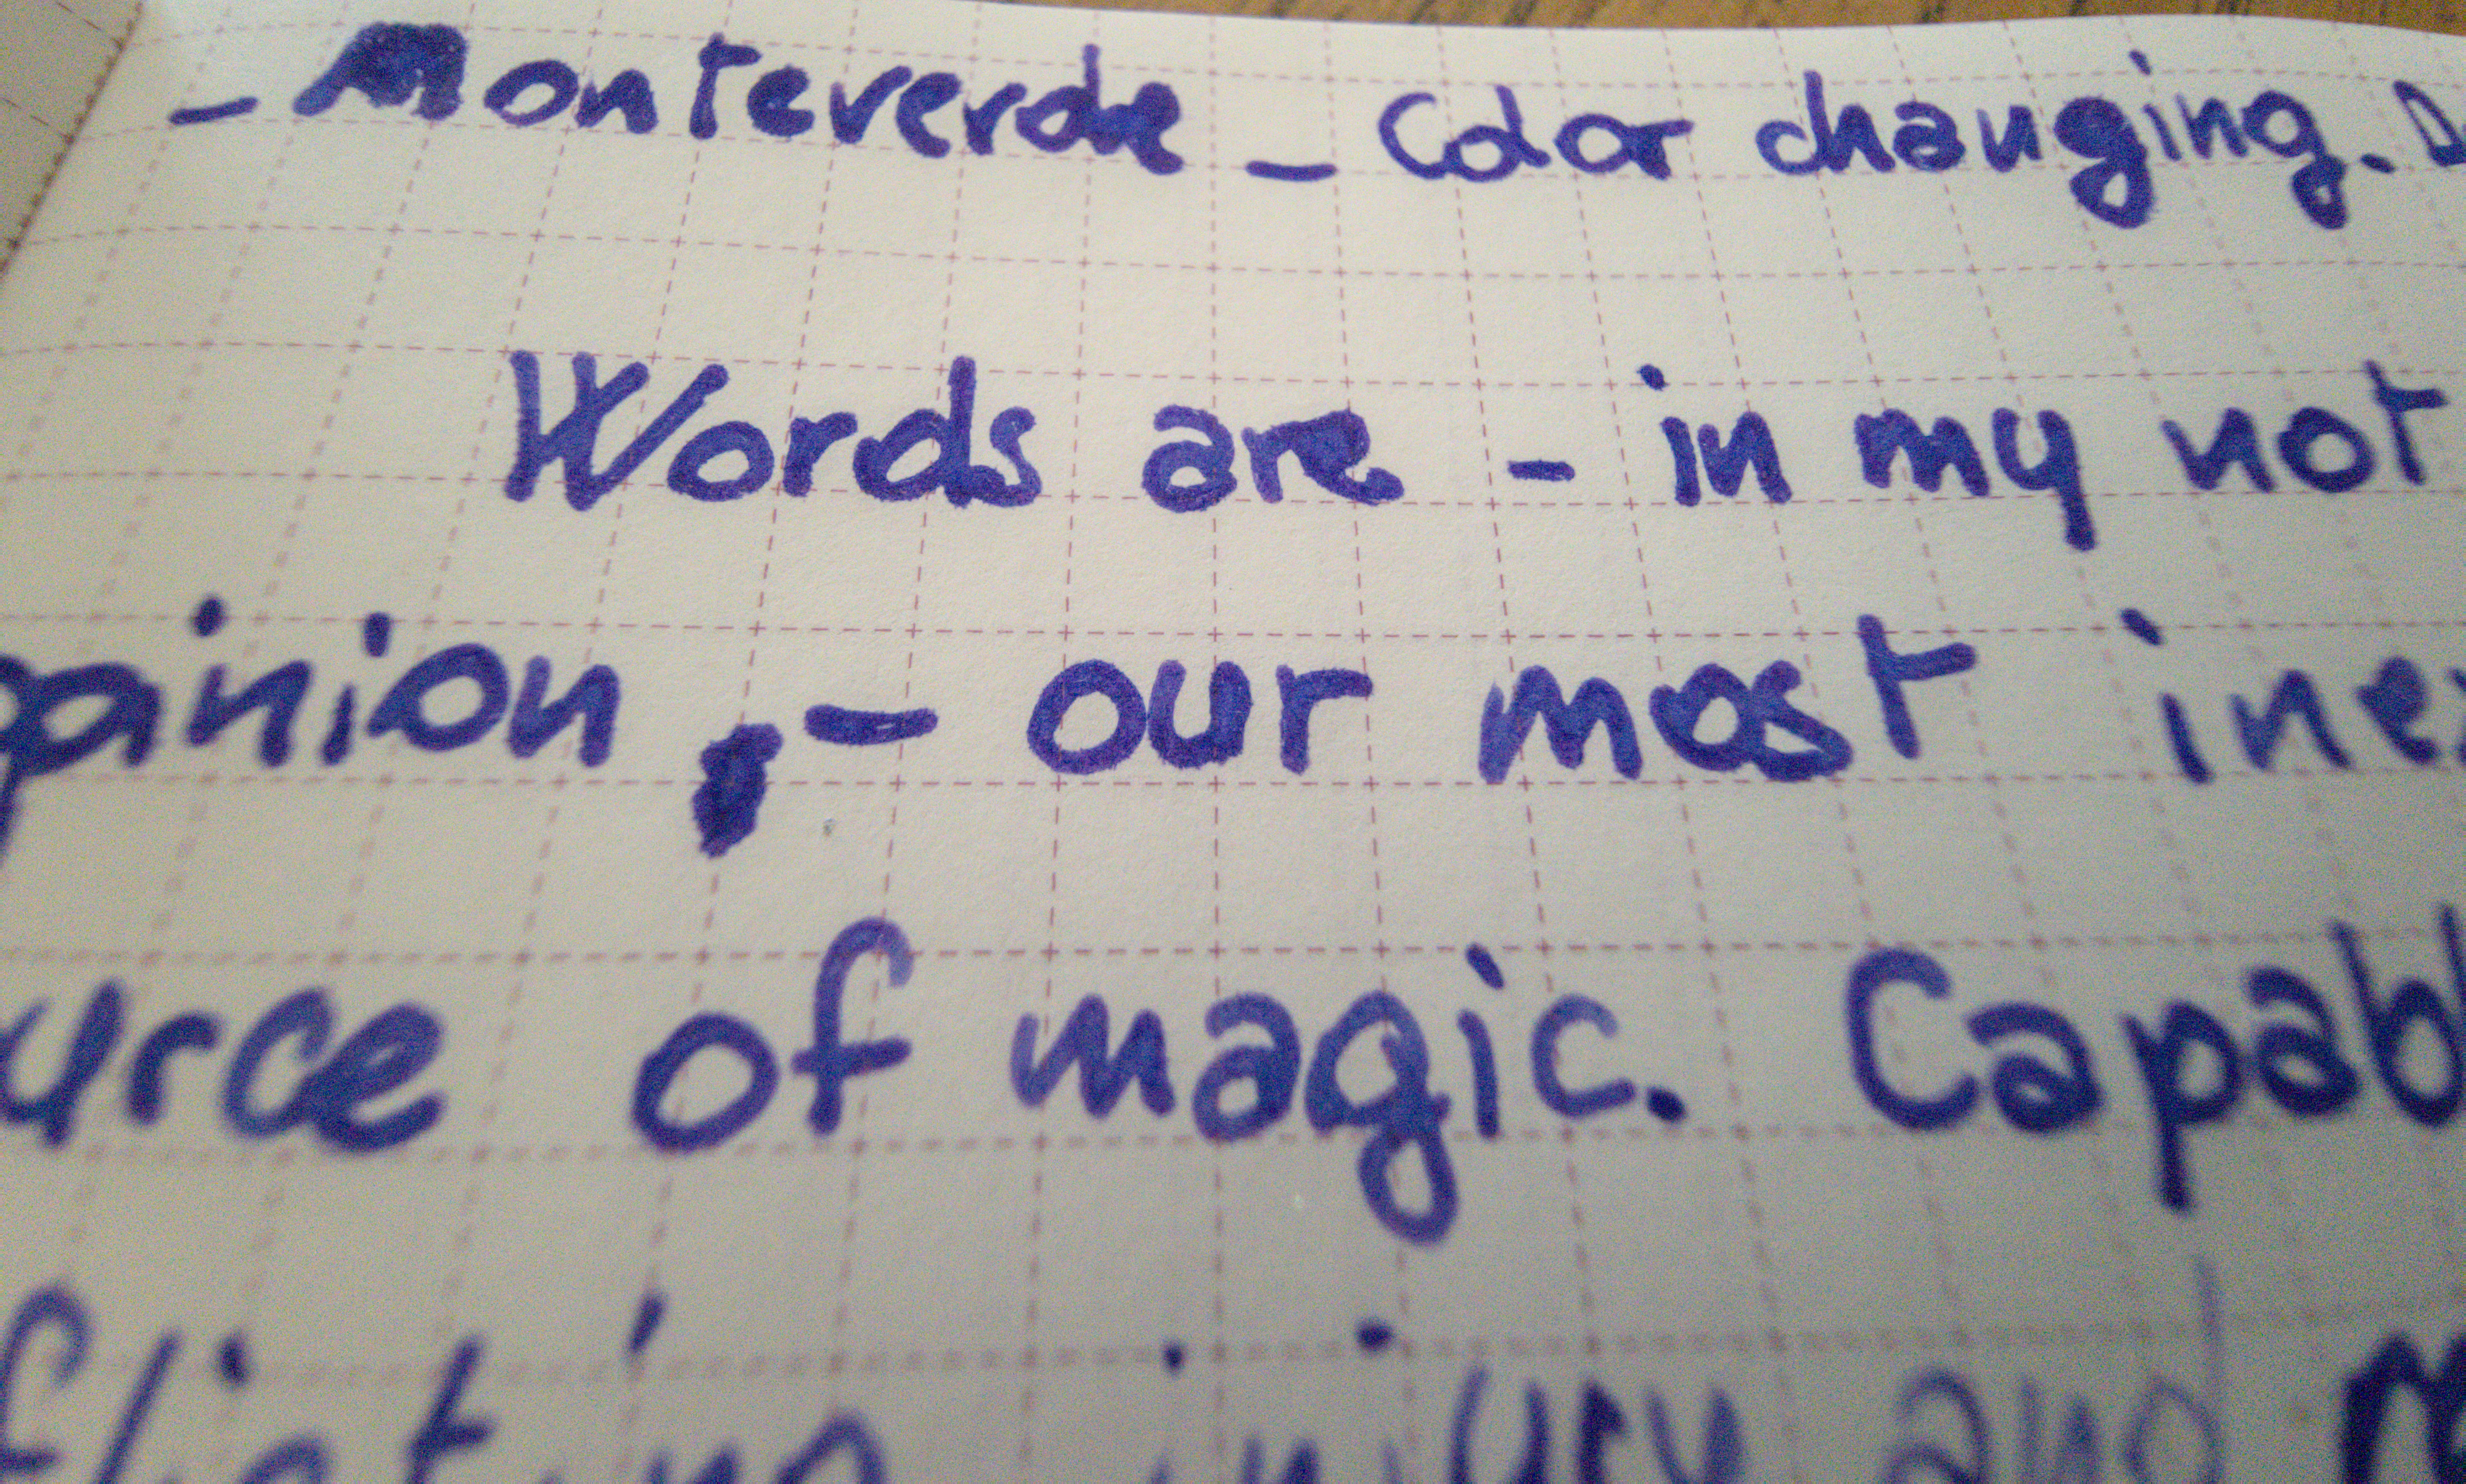 - Monteverde - Color changing.
Words are - in my not
pinion, - our most inex
urce of magic. Capabl
flicting injury and